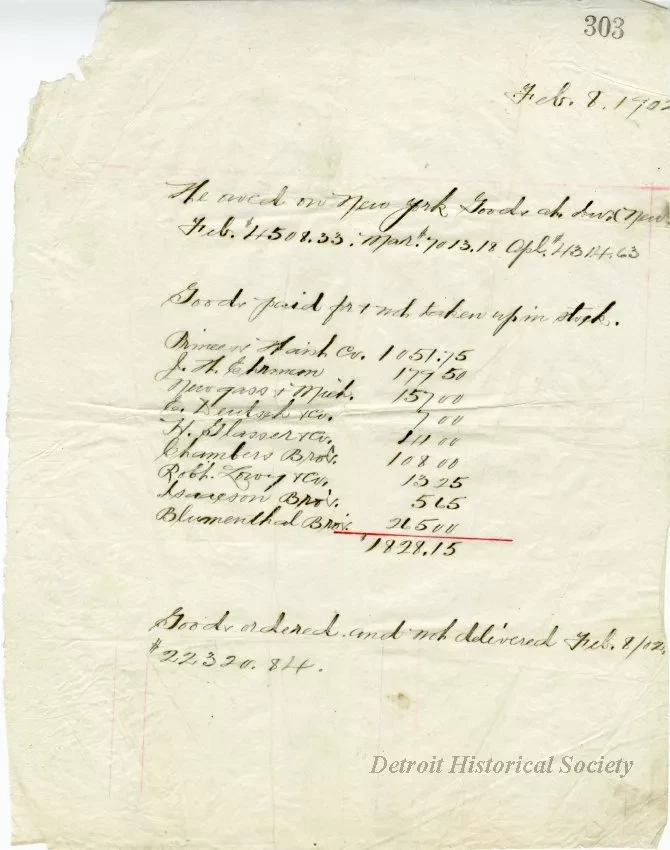 303
Feb. 8. 1902
He owed on New York Goods (New
Feb. $4508.33. Mar. $7013.18 Apl. $4314.63
Goods paid for & not taken up in stock.
& Hainh Co. 1051.75
J. H. Ehrman 179 50
Newgass & Mich. 157 00
E. Deutsch & Co. 7 00
H. Glasser & Co. 41 00
Chambers Bro's. 108 00
Robt. Lowy & Co. 13 25
Isaacson Bro's. 5 65
Blumenthal Bro's. 265 00
$1828.15
Goods ordered and not delivered Feb. 8/02.
$22320.84.
Detroit Historical Society